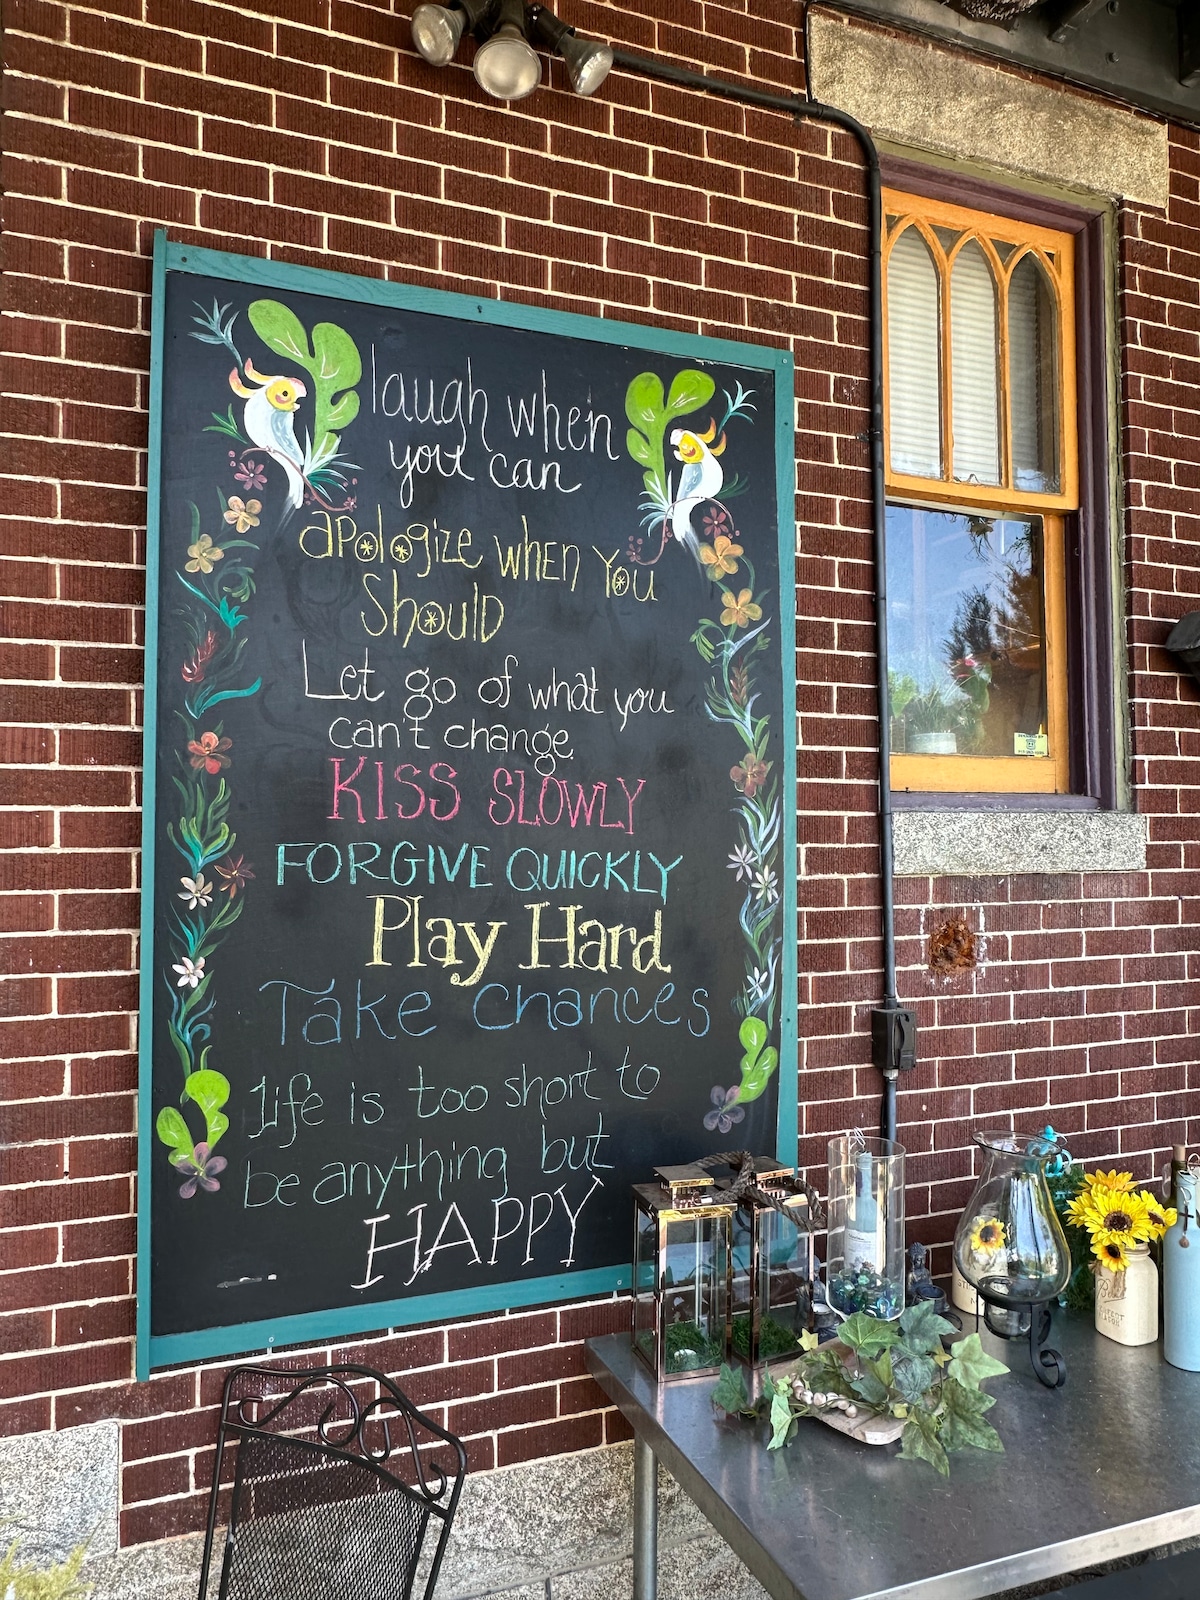 laugh when
you can
apologize when you
Should
Let go of what you
can't change
KISS SLOWLY
FORGIVE QUICKLY
Play Hard
Take Chances
Life is too short to
be anything but
HAPPY